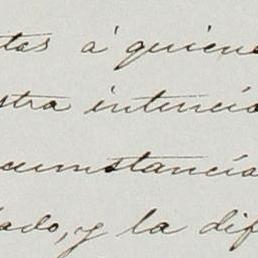 tas á quiene
stra intenció
cumstancia
ado, y la dif